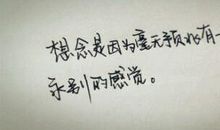 想念是因为毫无预兆有一
永别的感觉。